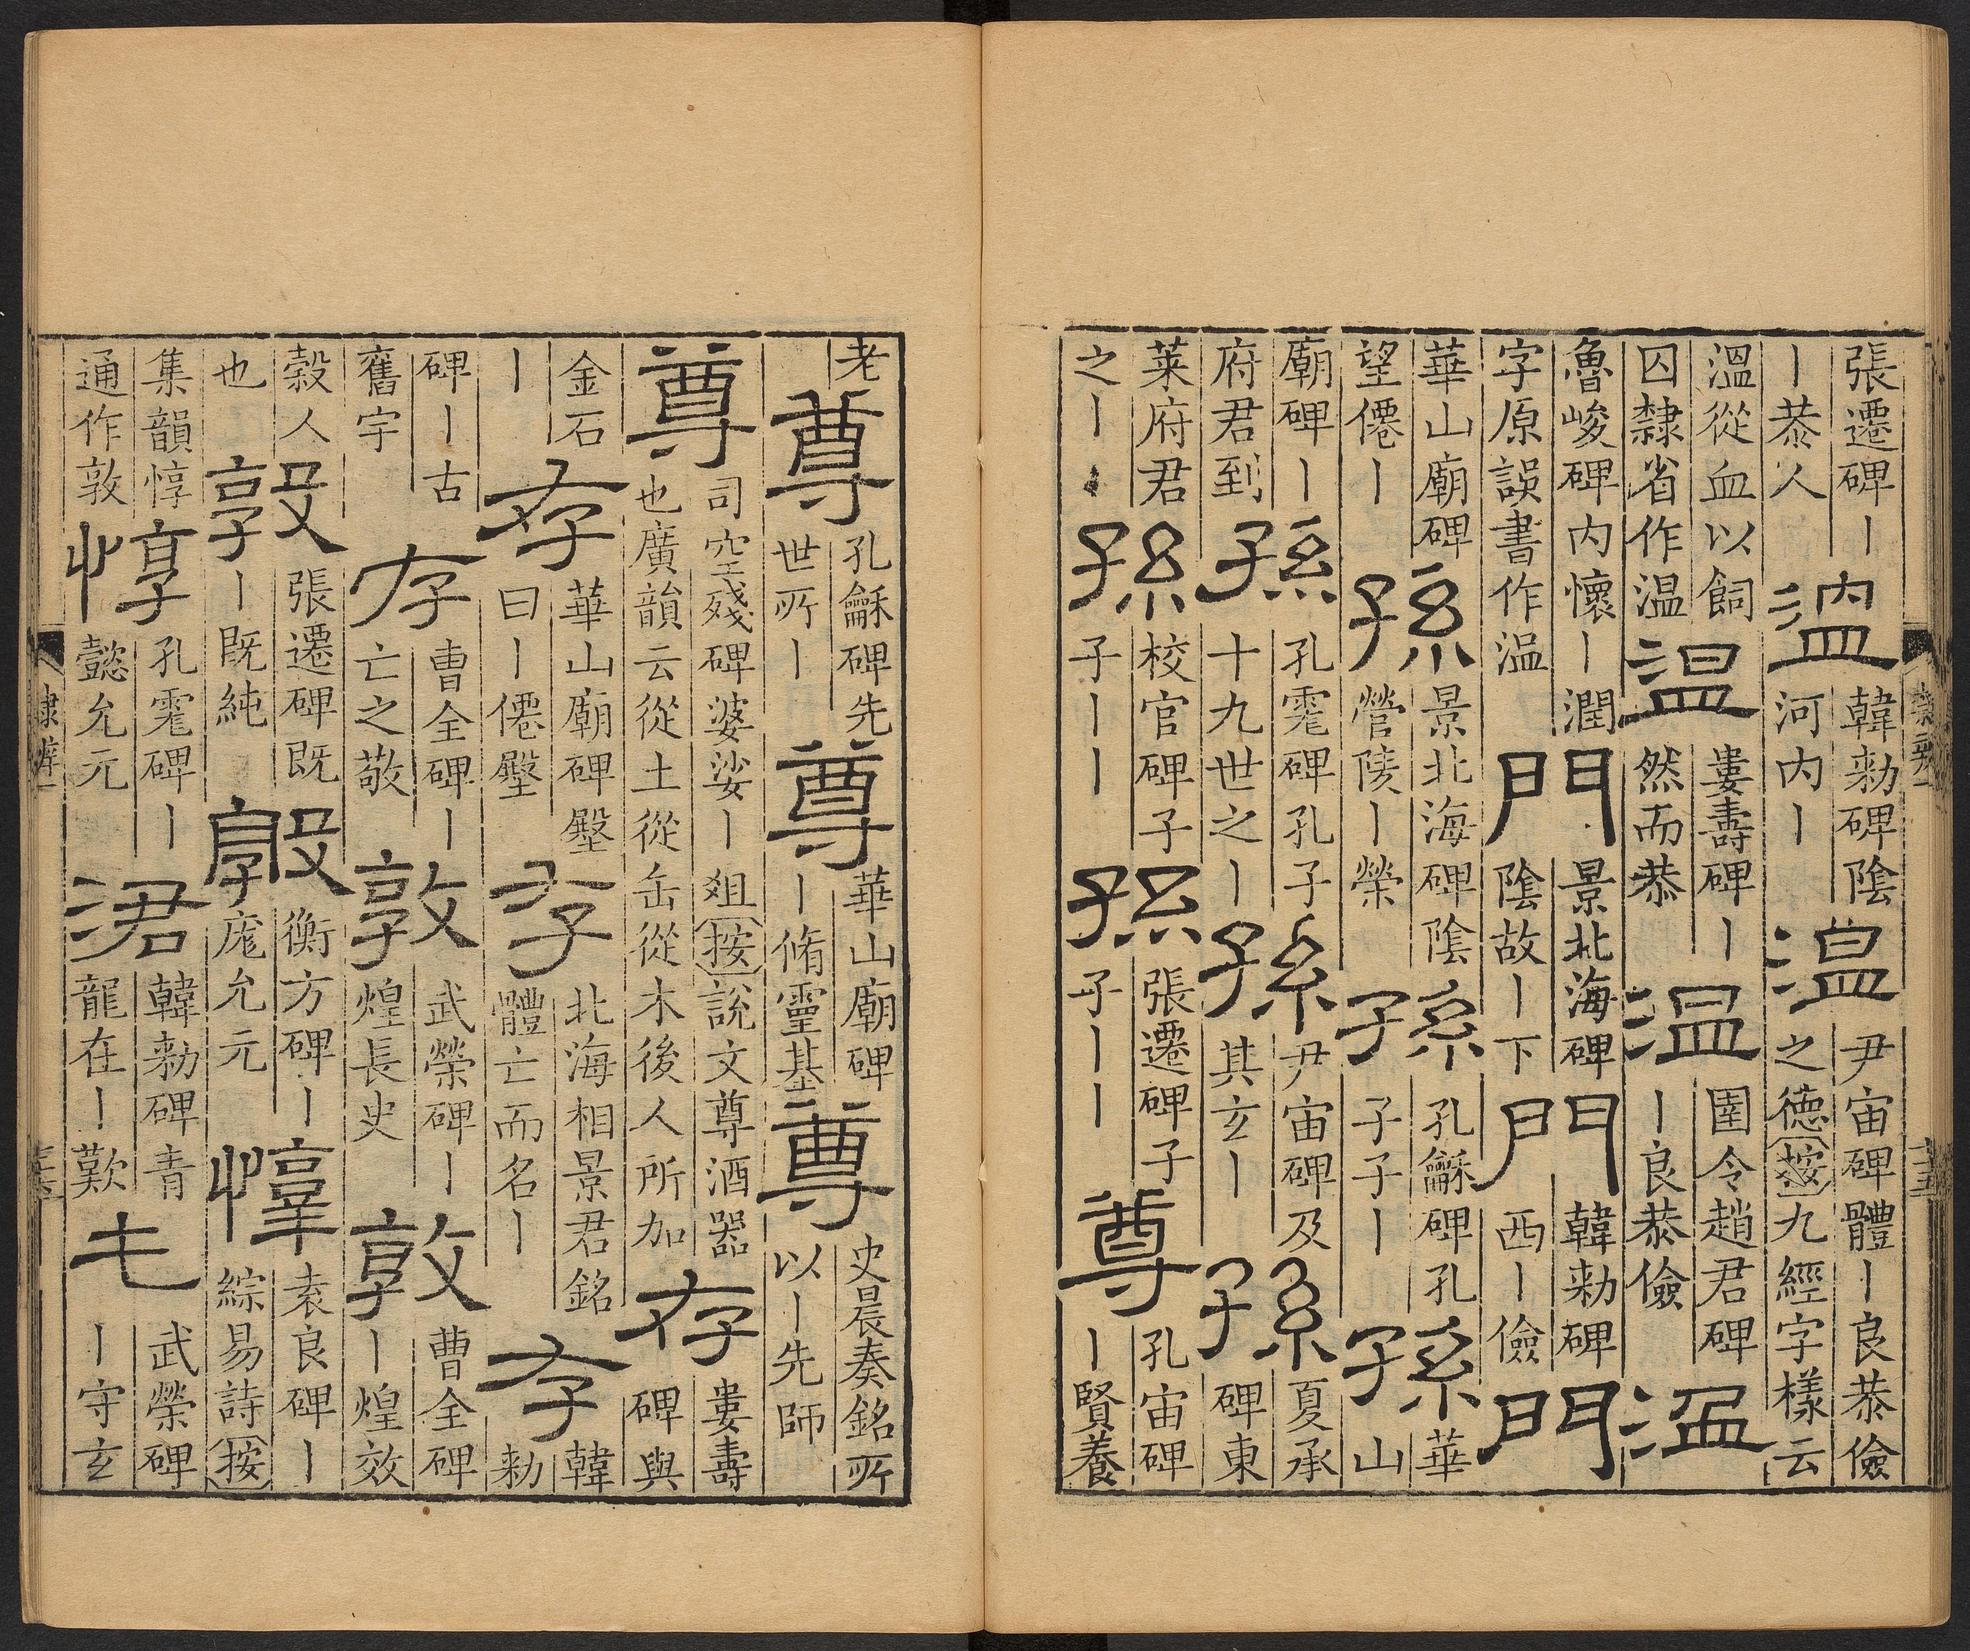 張遷碑丨丨恭人溫韓勑碑陰河內丨溫尹宙碑體丨良恭儉之德按九經字樣云
溫從血以飼囚隸省作温溫婁壽碑丨然而恭温圉令趙君碑丨良恭儉溫
魯峻碑內懷丨潤字原誤書作温門景北海碑陰故丨下門韓勑碑西丨儉門
華山廟碑望僊丨孫景北海碑陰營陵丨榮孫孔龢碑孔子子丨孫華山
廟碑丨府君到孫孔彪碑孔子十九世之丨孫尹宙碑及其玄丨孫夏承碑東
萊府君之丨孫校官碑子子丨丨孫張遷碑子子丨丨尊孔宙碑丨賢養
老尊孔龢碑先世所丨尊華山廟碑丨脩靈基尊史晨奏銘所以丨先師
尊司空殘碑婆娑丨爼按說文尊酒器也廣韻云從土從缶從木後人所加存婁壽碑與
金石丨存華山廟碑壂曰丨僊壂存北海相景君銘體亡而名丨存韓勑
碑丨古舊宇存曹全碑丨亡之敬敦武榮碑丨煌長史敦曹全碑丨煌效
穀人也敦張遷碑既丨既純敦衡方碑丨庬允元惇袁良碑丨綜易詩按
集韻惇通作敦惇孔彪碑丨懿允元涒韓勑碑青龍在丨歎屯武榮碑丨守玄
隸辨